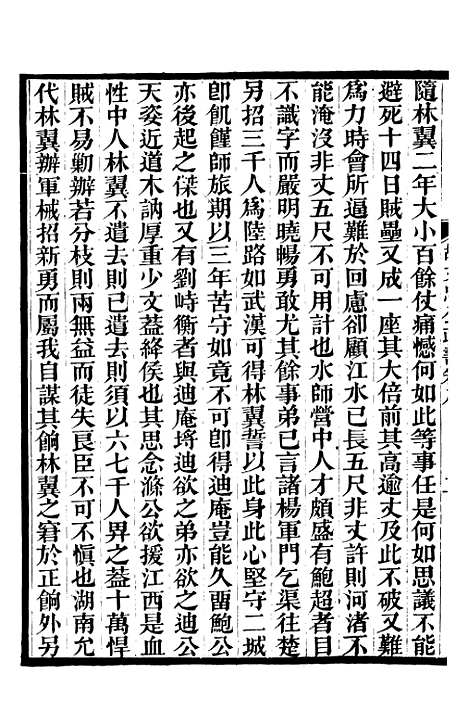 隨林翼二年大小百餘仗痛憾何如此等事任是何如思議不能
避死十四日賊壘又成一座其大倍前其高逾丈及此不破又難
爲力時會所逼難於回慮卻顧江水已長五尺非丈許則河渚不
能淹沒非丈五尺不可用計也水師營中人才頗盛有鮑超者目
不識字而嚴明曉暢勇敢尤其餘事弟已言諸楊軍門乞渠往楚
另招三千人爲陸路如武漢可得林翼誓以此身此心堅守二城
卽飢饉師旅期以三年苦守如竟不可卽得迪庵豈能久畱鮑公
亦後起之傑也又有劉峙衡者與迪庵埓迪欲之弟亦欲之迪公
天姿近道木訥厚重少文蓋絳侯也其思念滌公欲援江西是血
性中人林翼不遣去則已遣去則須以六七千人畀之蓋十萬悍
賊不易勦辦若分枝則兩無益而徒失良臣不可不愼也湖南允
代林翼辦軍械招新勇而屬我自謀其餉林翼之窘於正餉外另